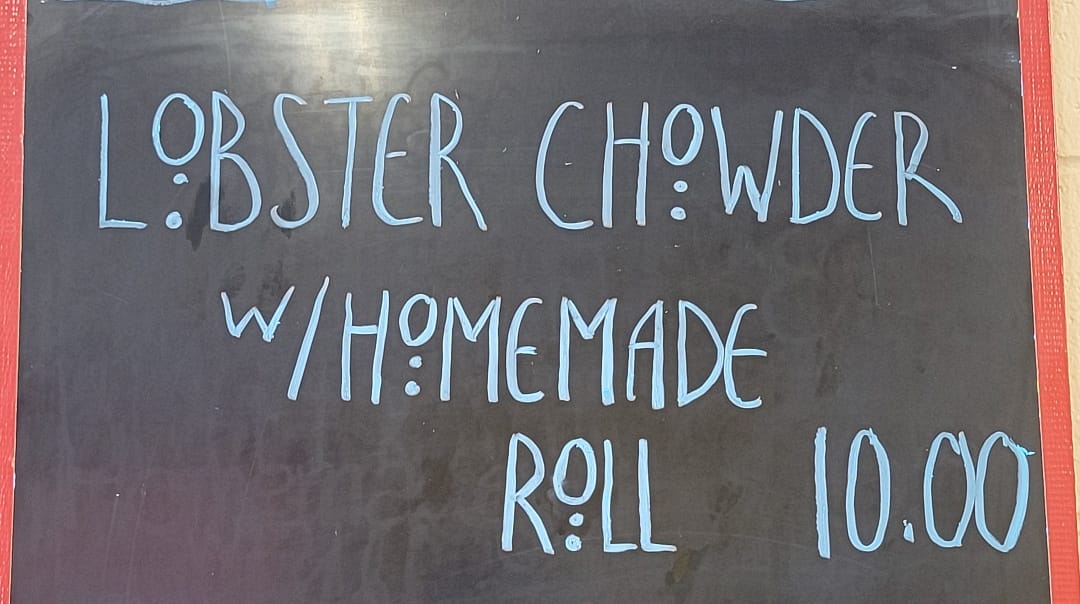 LOBSTER CHOWDER
W/HOMEMADE
ROLL 10.00